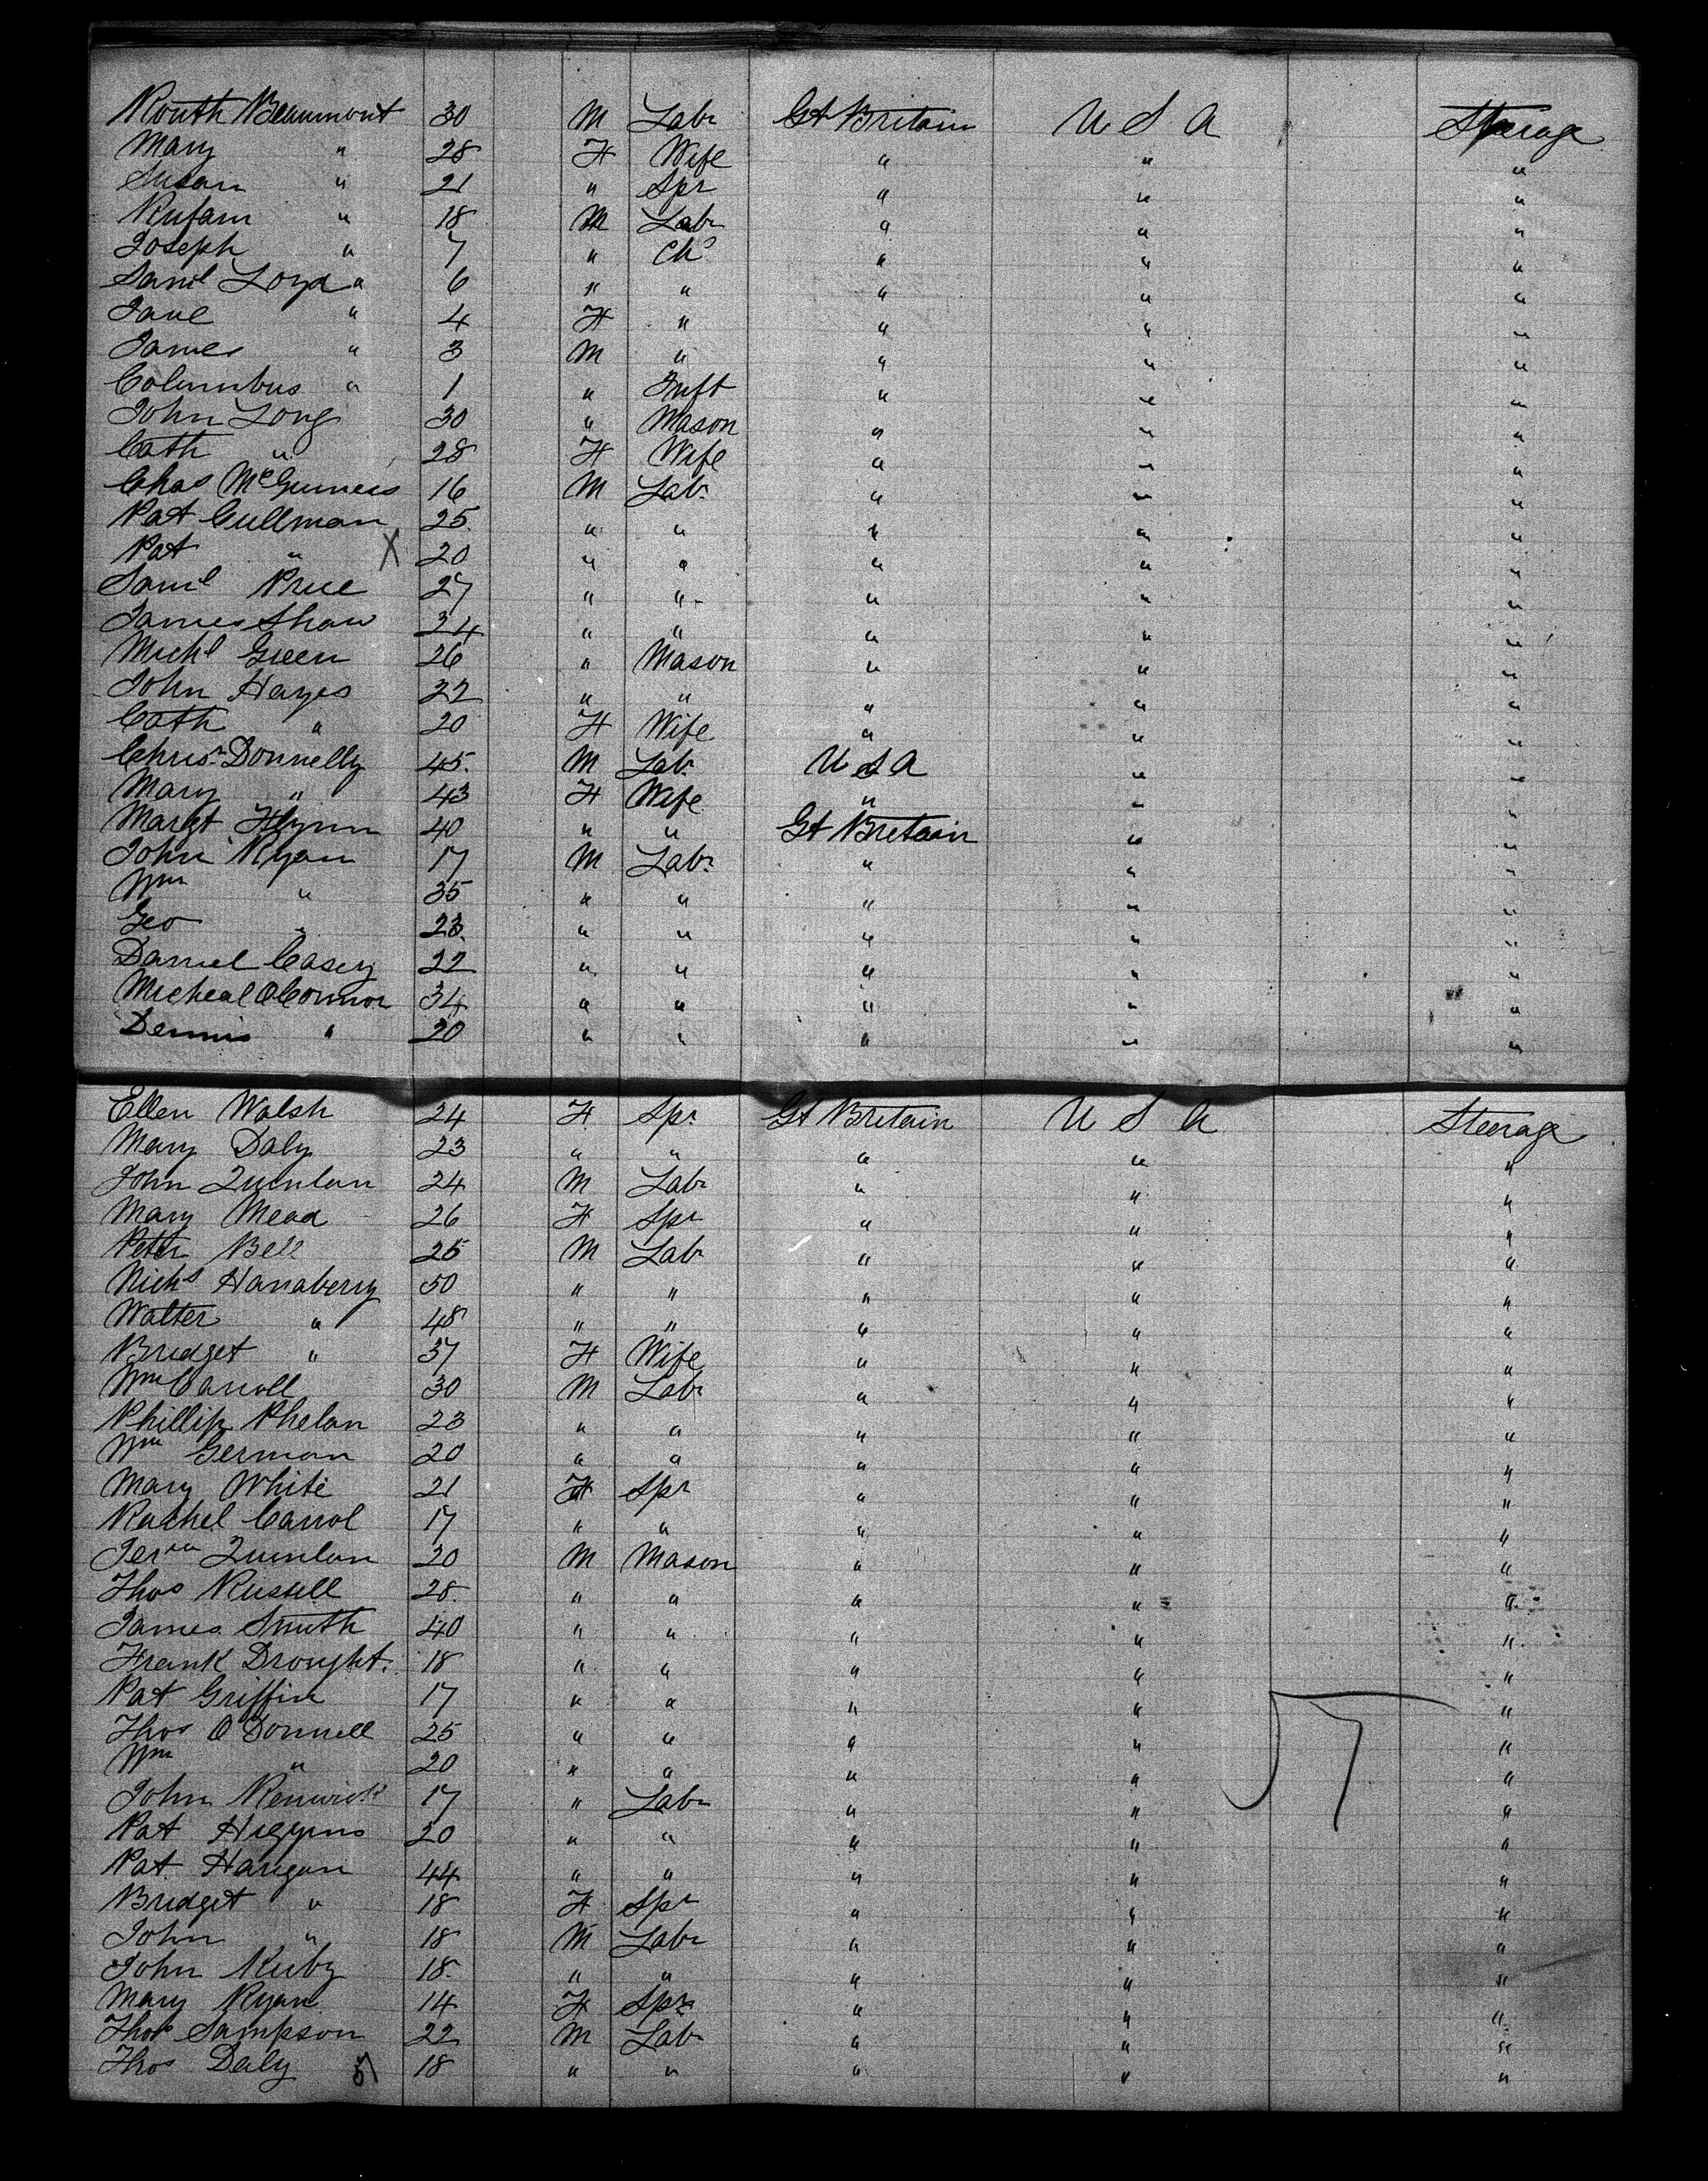 Routh Beaumont 30 M Labr Gt Britain U S A Steerage
Mary " 28 F Wife " " "
Susan " 21 " Spr " " "
Rufam " 18 M Labr " " "
Joseph " 7 " Chd " " "
Saml Loyd " 6 " " " " "
Jane " 4 F " " " "
James " 3 M " " " "
Columbus " 1 " Inft " " "
John Long 30 " Mason " " "
Cath " 28 F Wife " " "
Chas McGuiness 16 M Labr " " "
Pat Cullman 25 " " " " "
Pat " X 20 " " " " "
Saml Price 27 " " " " "
James Shaw 24 " " " " "
Michl Green 26 " Mason " " "
John Hayes 32 " " " " "
Cath " 20 F Wife " " "
Chrisr Donnelly 45 M Labr U S A " "
Mary " 43 F Wife " " "
Margt Flynn 40 " " Gt Bretain " "
John Ryan 17 M Labr " " "
Wm " 35 " " " " "
Geo " 23 " " " " "
Daniel Casey 22 " " " " "
Micheal OConnor 34 " " " " "
Dennis " 20 " " " " "
Ellen Walsh 24 F Spr Gt Bretain U S A Steerage
Mary Daly 23 " " " " "
John Quinlan 24 M Labr " " "
Mary Mead 26 F Spr " " "
Peter Bell 25 M Labr " " "
Nichs Hanaberry 50 " " " " "
Walter " 48 " " " " "
Bridget " 37 F Wife " " "
Wm Carroll 30 M Labr " " "
Phillip Phelan 23 " " " " "
Wm German 20 " " " " "
Mary White 21 F Spr " " "
Rachel Carrol 17 " " " " "
Jermh Quinlan 20 M Mason " " "
Thos Russell 28 " " " " "
James Smith 40 " " " " "
Frank Drought 18 " " " " "
Pat Griffin 17 " " " " "
Thos O'Donnell 25 " " " " "
Wm " 20 " " " " "
John Renwick 17 " Labr " " "
Pat Higgins 20 " " " " "
Pat Harigan 44 " " " " "
Bridget " 18 F Spr " " "
John " 18 M Labr " " "
John Kirby 18 " " " " "
Mary Ryan 14 F Spr " " "
Thos Sampson 22 M Labr " " "
Thos Daly 57 18 " " " " "
57